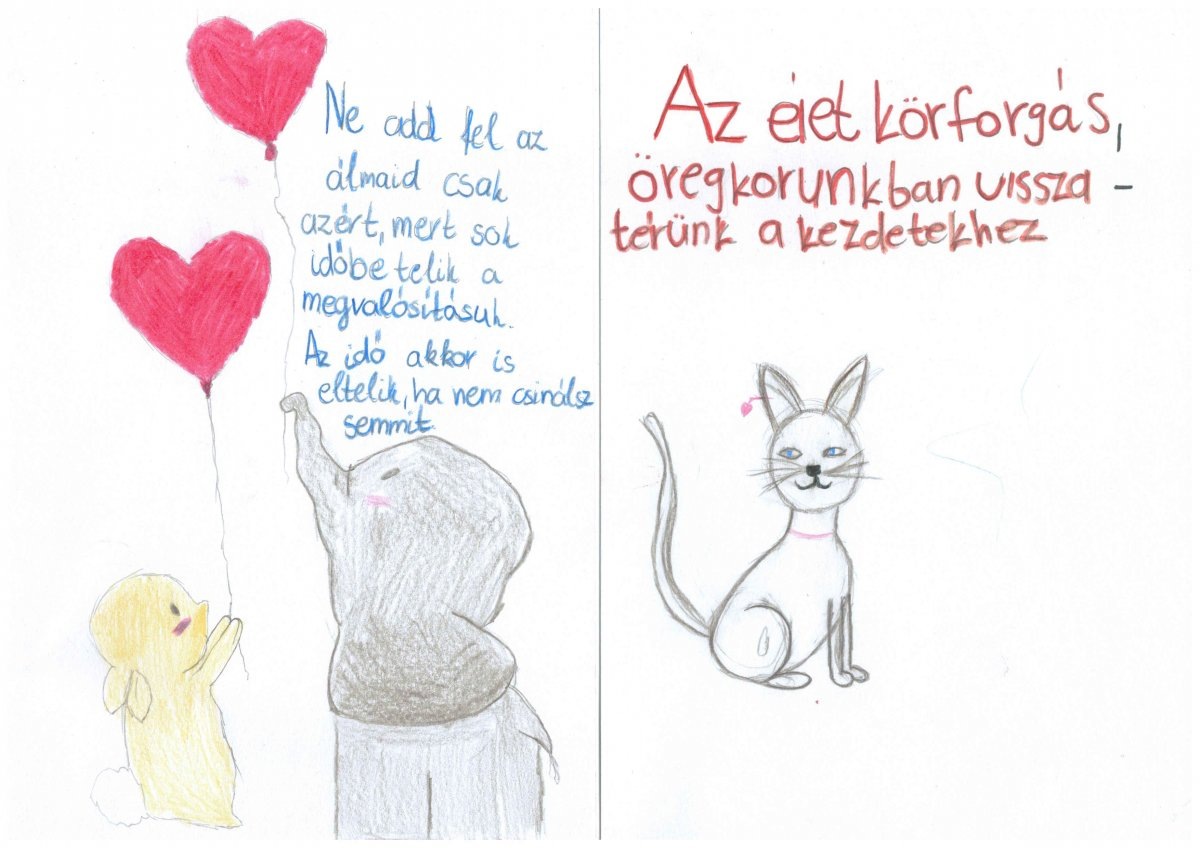 Ne add fel az
álmaid csak
azért, mert sok
időbe telik a
megvalósításuk.
Az idő akkor is
eltelik, ha nem csinálsz
semmit.
Az élet körforgás,
öregkorunkban vissza -
térünk a kezdetekhez